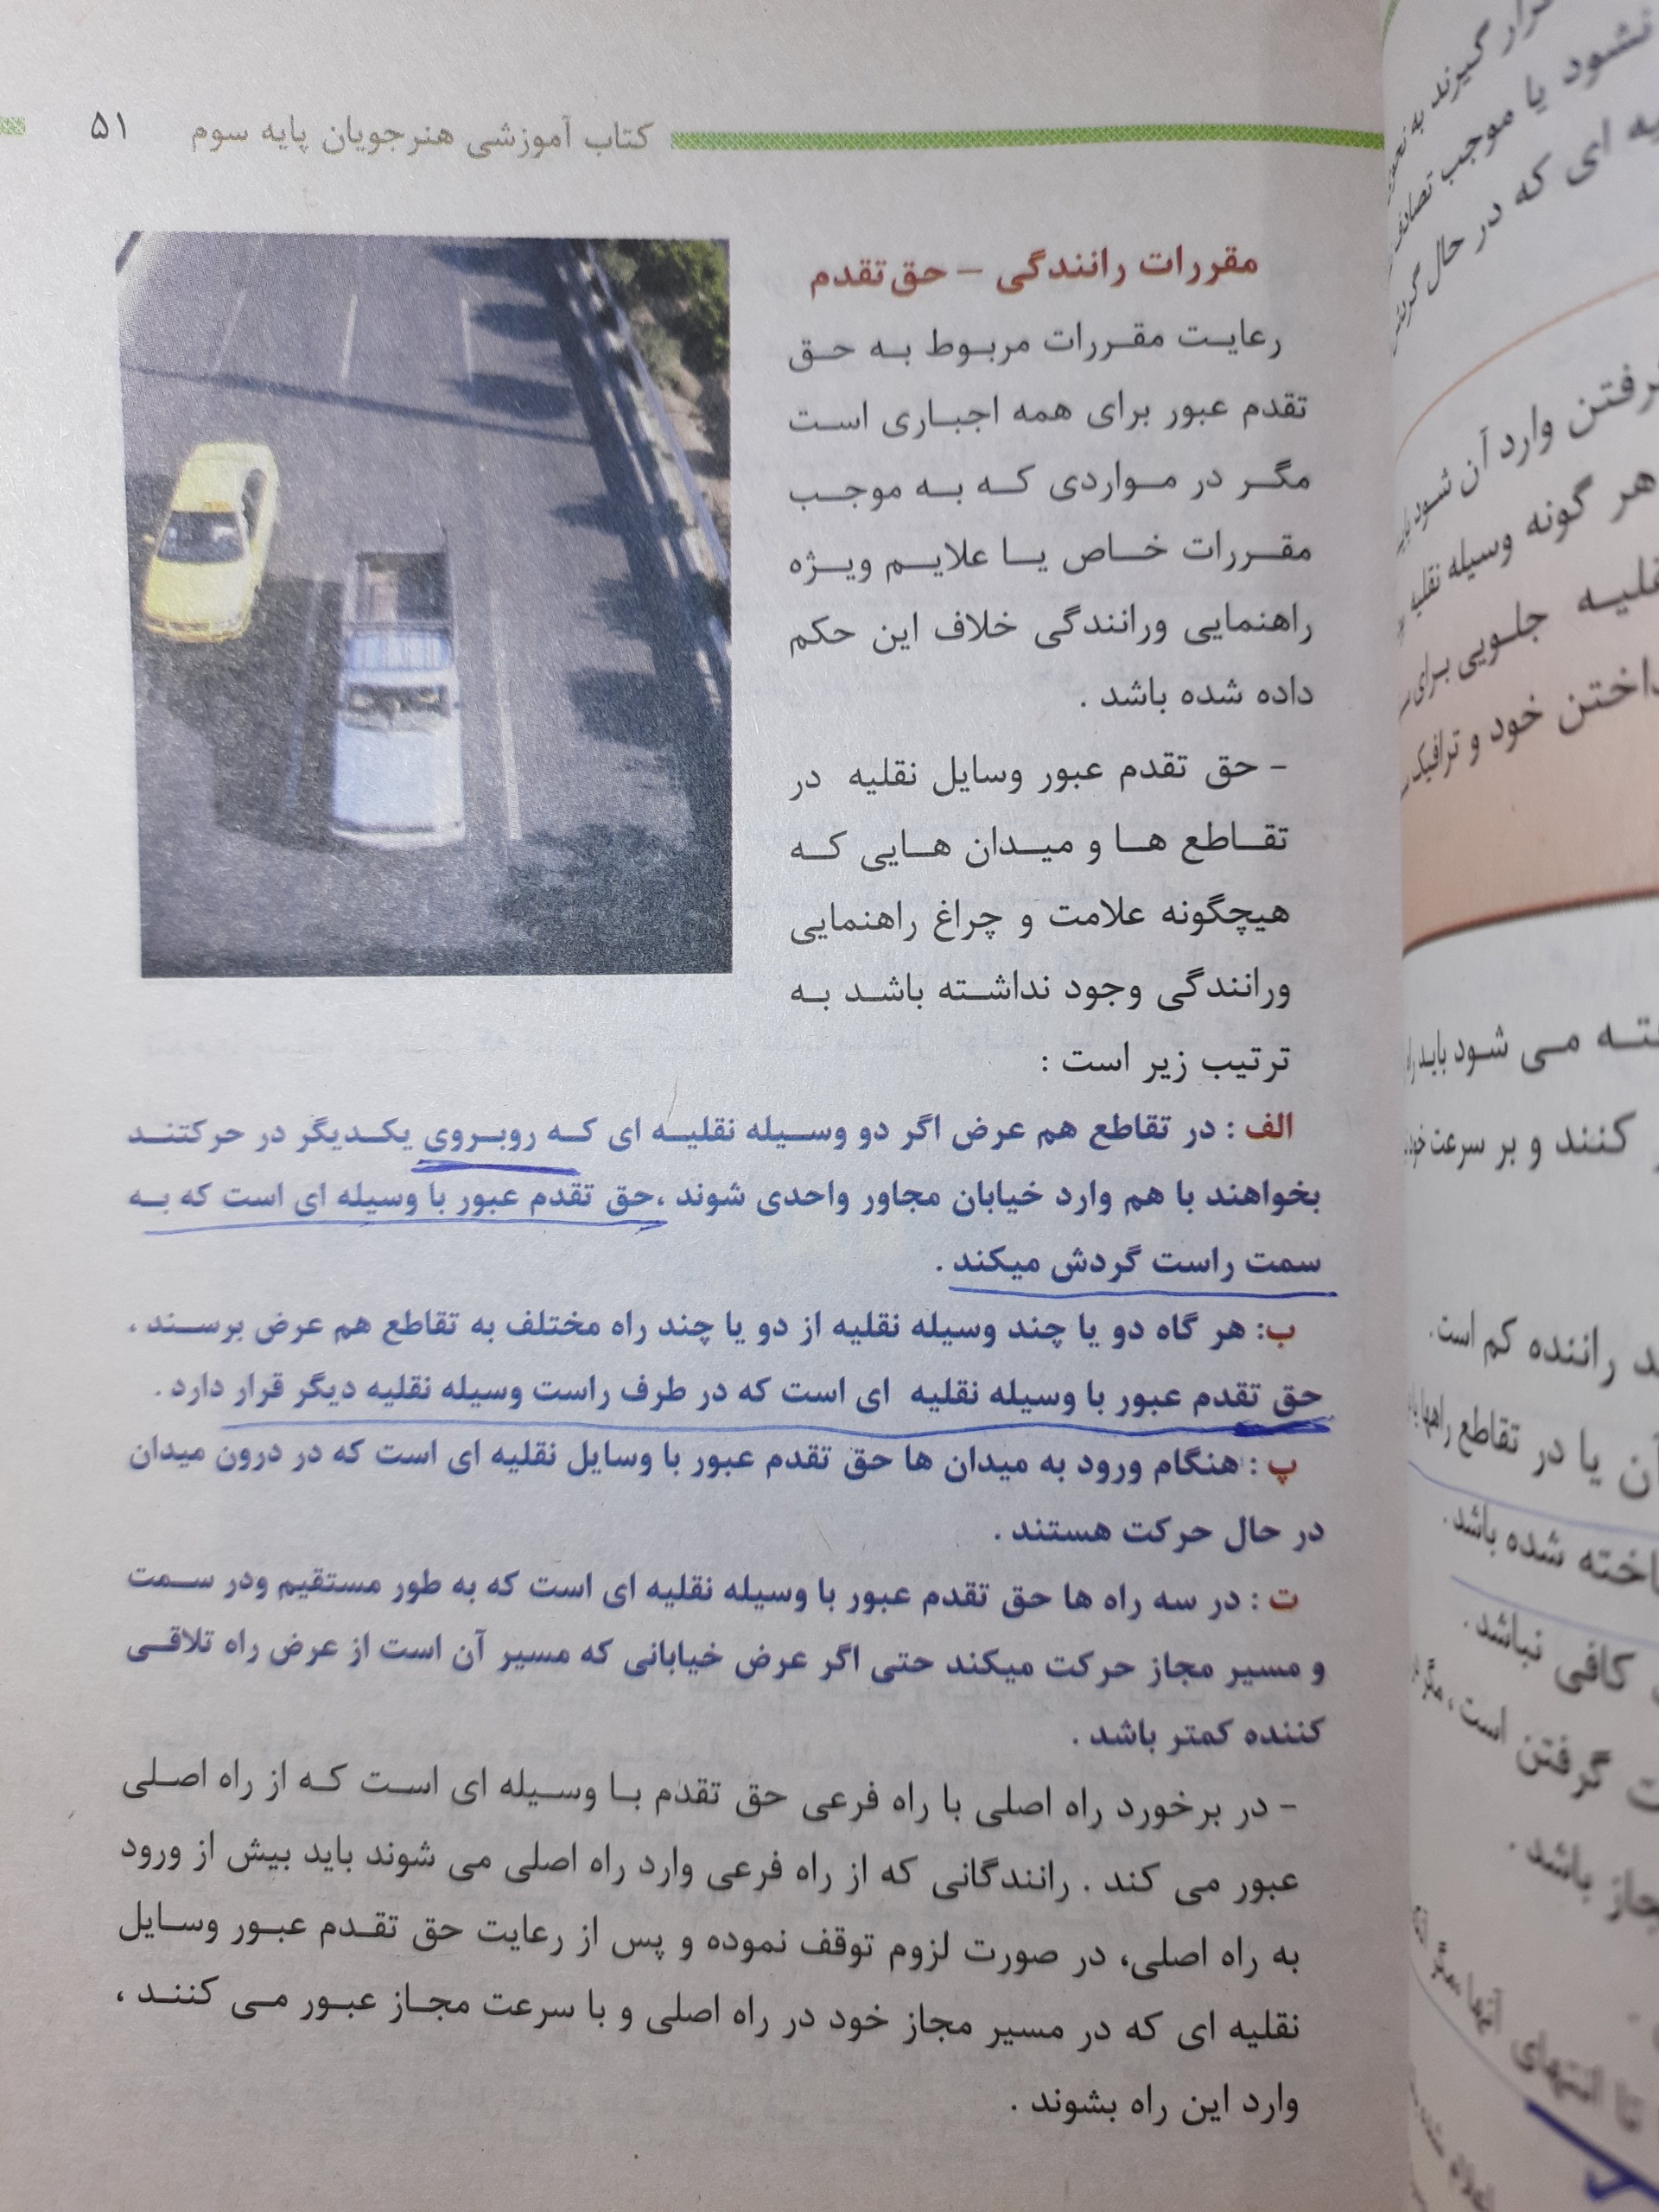 کتاب آموزشی هنرجویان پایه سوم ۵۱
مقررات رانندگی – حق تقدم
رعایت مقررات مربوط به حق
تقدم عبور برای همه اجباری است
مگر در مواردی که به موجب
مقررات خاص یا علایم ویژه
راهنمایی ورانندگی خلاف این حکم
داده شده باشد .
- حق تقدم عبور وسایل نقلیه در
تقاطع ها و میدان هایی که
هیچگونه علامت و چراغ راهنمایی
ورانندگی وجود نداشته باشد به
ترتیب زیر است :
الف : در تقاطع هم عرض اگر دو وسیله نقلیه ای که روبروی یکدیگر در حرکتند
بخواهند با هم وارد خیابان مجاور واحدی شوند ،حق تقدم عبور با وسیله ای است که به
سمت راست گردش میکند .
ب: هر گاه دو یا چند وسیله نقلیه از دو یا چند راه مختلف به تقاطع هم عرض برسند ،
حق تقدم عبور با وسیله نقلیه ای است که در طرف راست وسیله نقلیه دیگر قرار دارد .
پ : هنگام ورود به میدان ها حق تقدم عبور با وسایل نقلیه ای است که در درون میدان
در حال حرکت هستند .
ت : در سه راه ها حق تقدم عبور با وسیله نقلیه ای است که به طور مستقیم ودر سمت
و مسیر مجاز حرکت میکند حتی اگر عرض خیابانی که مسیر آن است از عرض راه تلاقی
کننده کمتر باشد .
- در برخورد راه اصلی با راه فرعی حق تقدم با وسیله ای است که از راه اصلی
عبور می کند . رانندگانی که از راه فرعی وارد راه اصلی می شوند باید بیش از ورود
به راه اصلی، در صورت لزوم توقف نموده و پس از رعایت حق تقدم عبور وسایل
نقلیه ای که در مسیر مجاز خود در راه اصلی و با سرعت مجاز عبور می کنند ،
وارد این راه بشوند .
گیرند به
نشود یا موجب
ای که در حال
وارد آن شود
هر گونه وسیله نقلیه
جلویی برای
خود و ترافیک
می شود باید
کنند و بر سرعت
راننده کم است.
یا در تقاطع
شده باشد.
کافی نباشد.
گرفتن است ،
باشد .
انتهای